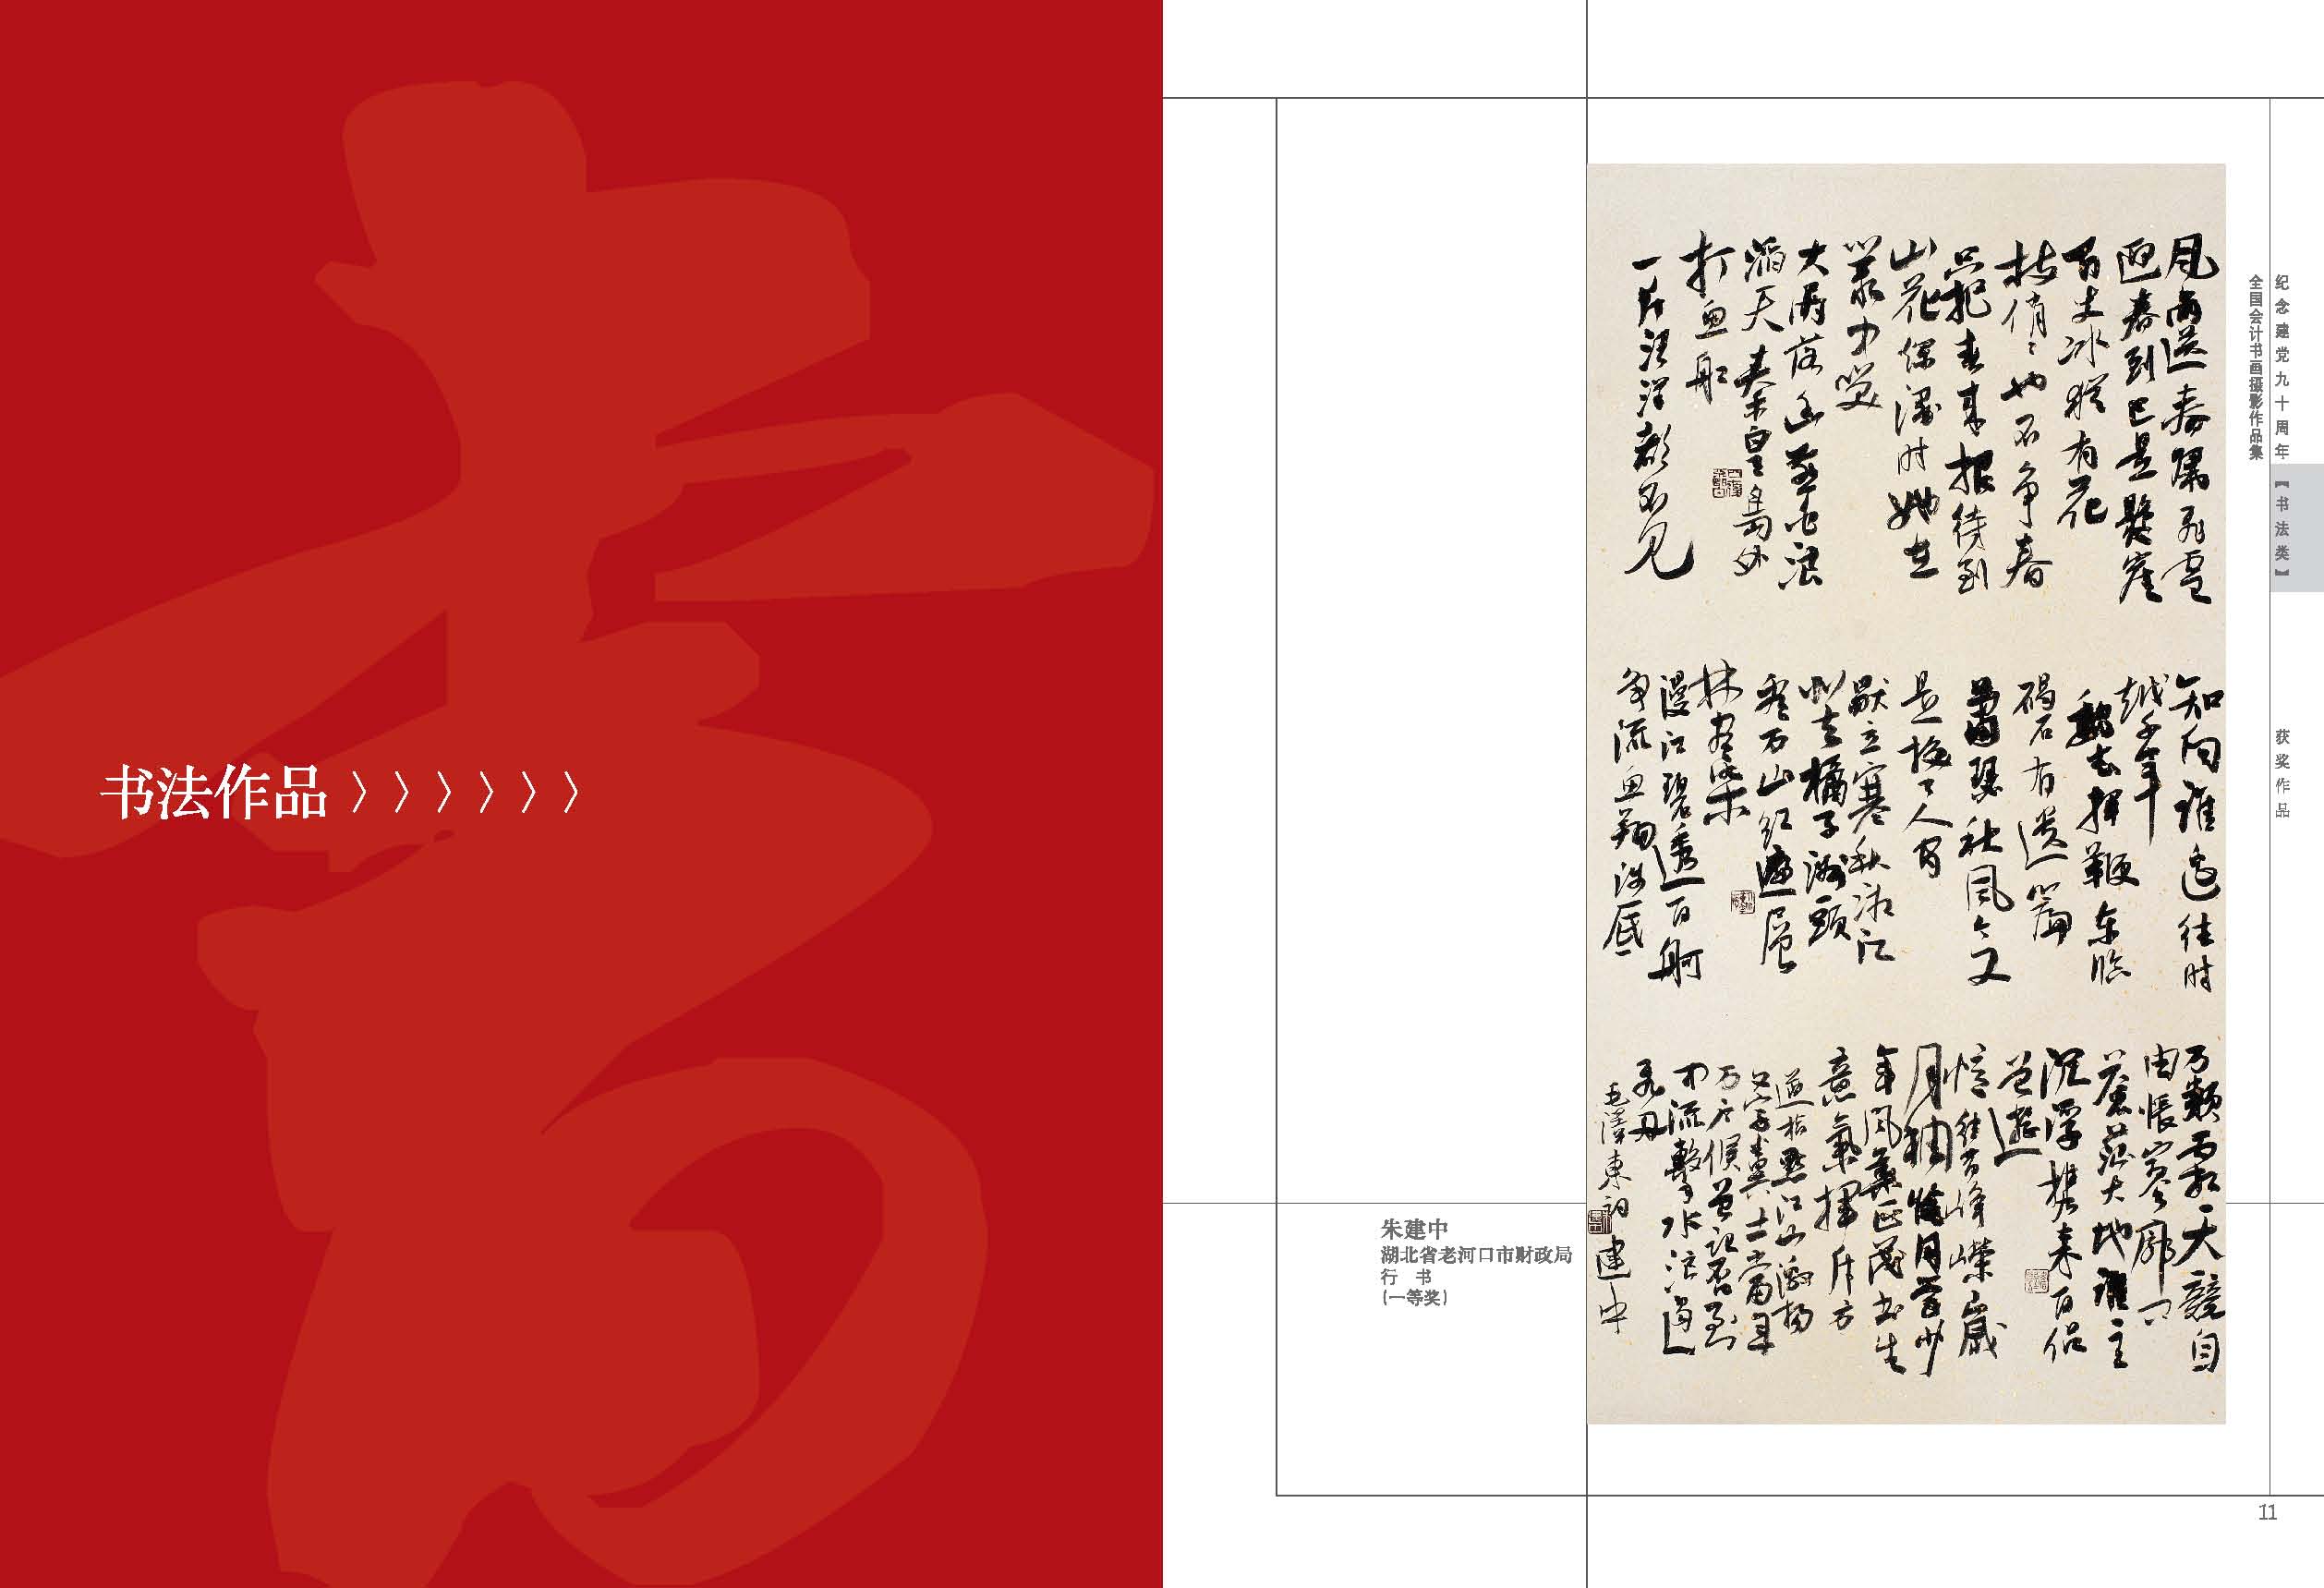 书法作品 〉〉〉〉〉〉
纪念建党九十周年【书法类】
全国会计书画摄影作品集
获奖作品
风雨送春归飞雪
迎春到已是悬崖
百丈冰犹有花
枝俏〻也不争春
只把春来报待到
山花烂漫时她在
丛中笑
大雨落幽燕白浪
滔天秦皇岛外
打鱼船
一片汪洋都不见
知向谁边往时
越千年
魏武挥鞭东临
碣石有遗篇
萧瑟秋风今又
是换了人间
独立寒秋湘江
北去橘子洲頭
看万山红遍层
林尽染
漫江碧透百舸
争流鱼翔浅底
万類霜天競自
由怅寥廓问
苍茫大地谁主
沉浮携来百侣
曾游
忆往昔峥嵘歲
月稠恰同学少
年风华正茂书生
意氣挥斥方
遒指点江山激扬
文字粪土当年
万户侯曾记否到
中流擊水浪遏
飞舟
毛澤東词 建中
朱建中
湖北省老河口市财政局
行 书
(一等奖)
11